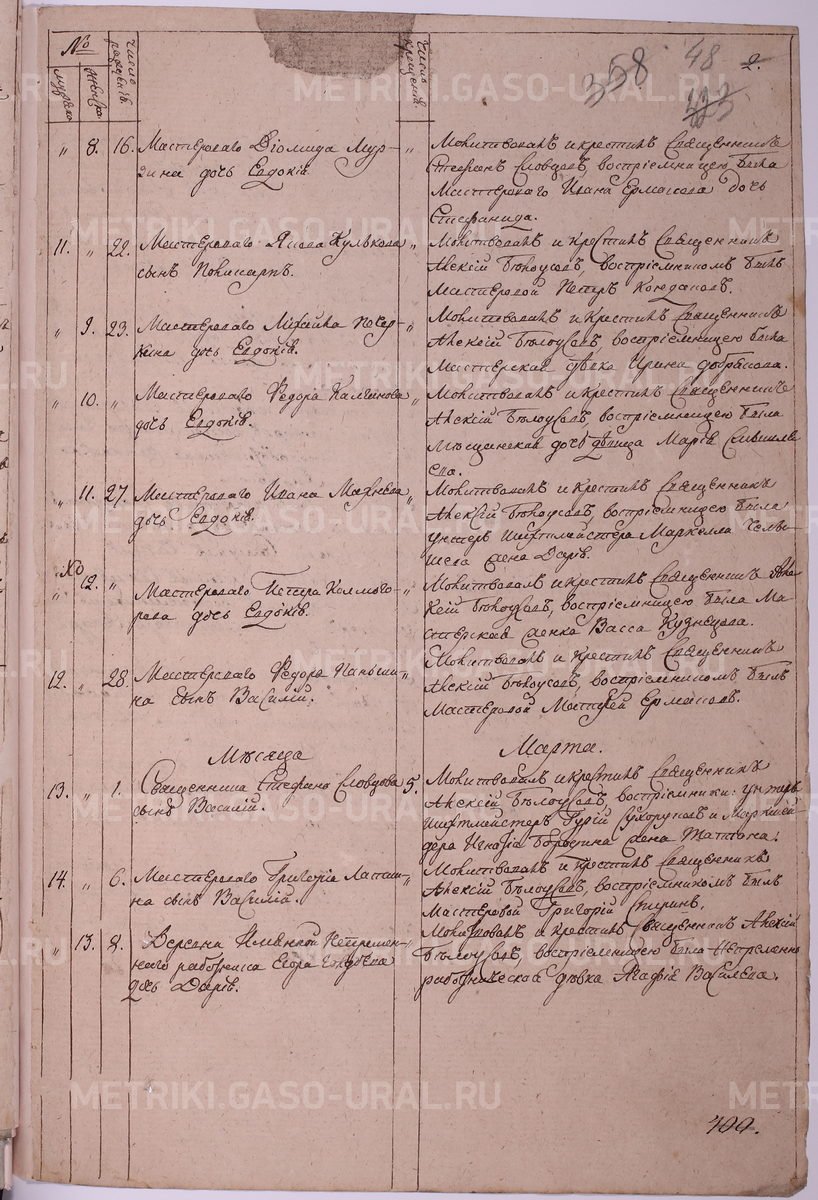 №
мужеска
женска
число рожденія.
число крещенія.
358
48
2.
423
„ 8. 16. Мастероваго Діомида Мур-
зина дочь Евдокія.
„ Молитвовалъ и крестилъ Священникъ
Стефанъ Словцовъ, воспріемницею была
Мастероваго Ивана Ермакова дочь
Стефанида.
11. „ 22. Мастероваго Якова Кулькова
сынъ Поликарпъ.
„ Молитвовалъ и крестилъ Священникъ
Алексій Бѣлоусовъ, воспріемникомъ былъ
Мастеровой Петръ
„ 9. 23. Мастероваго
дочь Евдокія.
„ Молитвовалъ и крестилъ Священникъ
Алексій Бѣлоусовъ, воспріемницею была
Мастерская дѣвка Ирина
„ 10. „ Мастероваго Федора
дочь Евдокія.
„ Молитвовалъ и крестилъ Священникъ
Алексій Бѣлоусовъ, воспріемницею была
Мѣщанская дочь дѣвица Марія
ева.
„ 11. 27. Мастероваго Ивана Махнева
дочь Евдокія.
„ Молитвовалъ и крестилъ Священникъ
Алексій Бѣлоусовъ, воспріемницею была
унтеръ Шихтмейстера Маркелла
жена Дарія.
„ 12. „ Мастероваго Петра Колмого-
рова дочь Евдокія.
„ Молитвовалъ и крестилъ Священникъ Але
ксій Бѣлоусовъ, воспріемницею была Ма-
стерская женка Васса Кузнецова.
12. „ 28. Мастероваго Федора Паньши-
на сынъ Василій.
„ Молитвовалъ и крестилъ Священникъ
Алексій Бѣлоусовъ, воспріемникомъ былъ
Мастеровой Матфей Ермаковъ.
Мѣсяца Марта.
13. „ 1. Священника Стефана Словцова
сынъ Василій.
5. Молитвовалъ и крестилъ Священникъ
Алексій Бѣлоусовъ, воспріемники: унтеръ
Шихтмейстеръ Гурій Сухоруковъ и
жена Татіана.
14. „ 6. Мастероваго Григорія Лапши-
на сынъ Василій.
„ Молитвовалъ и крестилъ Священникъ
Алексій Бѣлоусовъ, воспріемникомъ былъ
Мастеровой Григорій Спиринъ.
„ 13. 8. непремен-
наго работника Егора Голубева
дочь Дарія.
Молитвовалъ и крестилъ Священникъ Алексій
Бѣлоусовъ, воспріемницею была непременно
работническая дѣвка Агафія Василева.
400.
METRIKI.GASO-URAL.RU